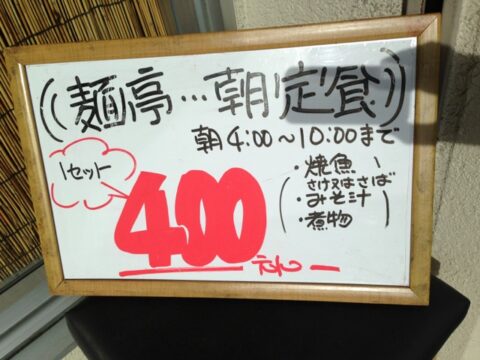 麺亭…朝定食
朝4:00～10:00まで
1セット
400
えん
・焼魚
さけ又はさば
・みそ汁
・煮物